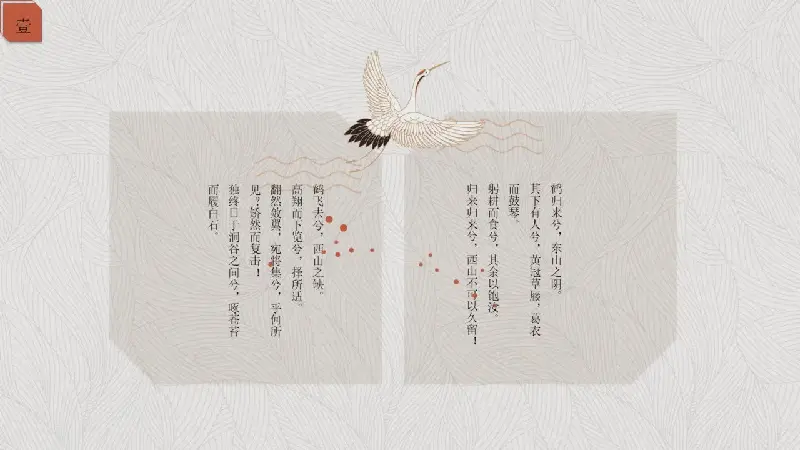 壹
鹤飞去兮，西山之缺。
高翔而下览兮，择所适。
翻然敛翼，宛将集兮，乎何所
见？矫然而复击！
独终日于涧谷之间兮，啄苍苔
而履白石。
鹤归来兮，东山之阴。
其下有人兮，黄冠草屦，葛衣
而鼓琴。
躬耕而食兮，其余以饱汝。
归来归来兮，西山不可以久留！